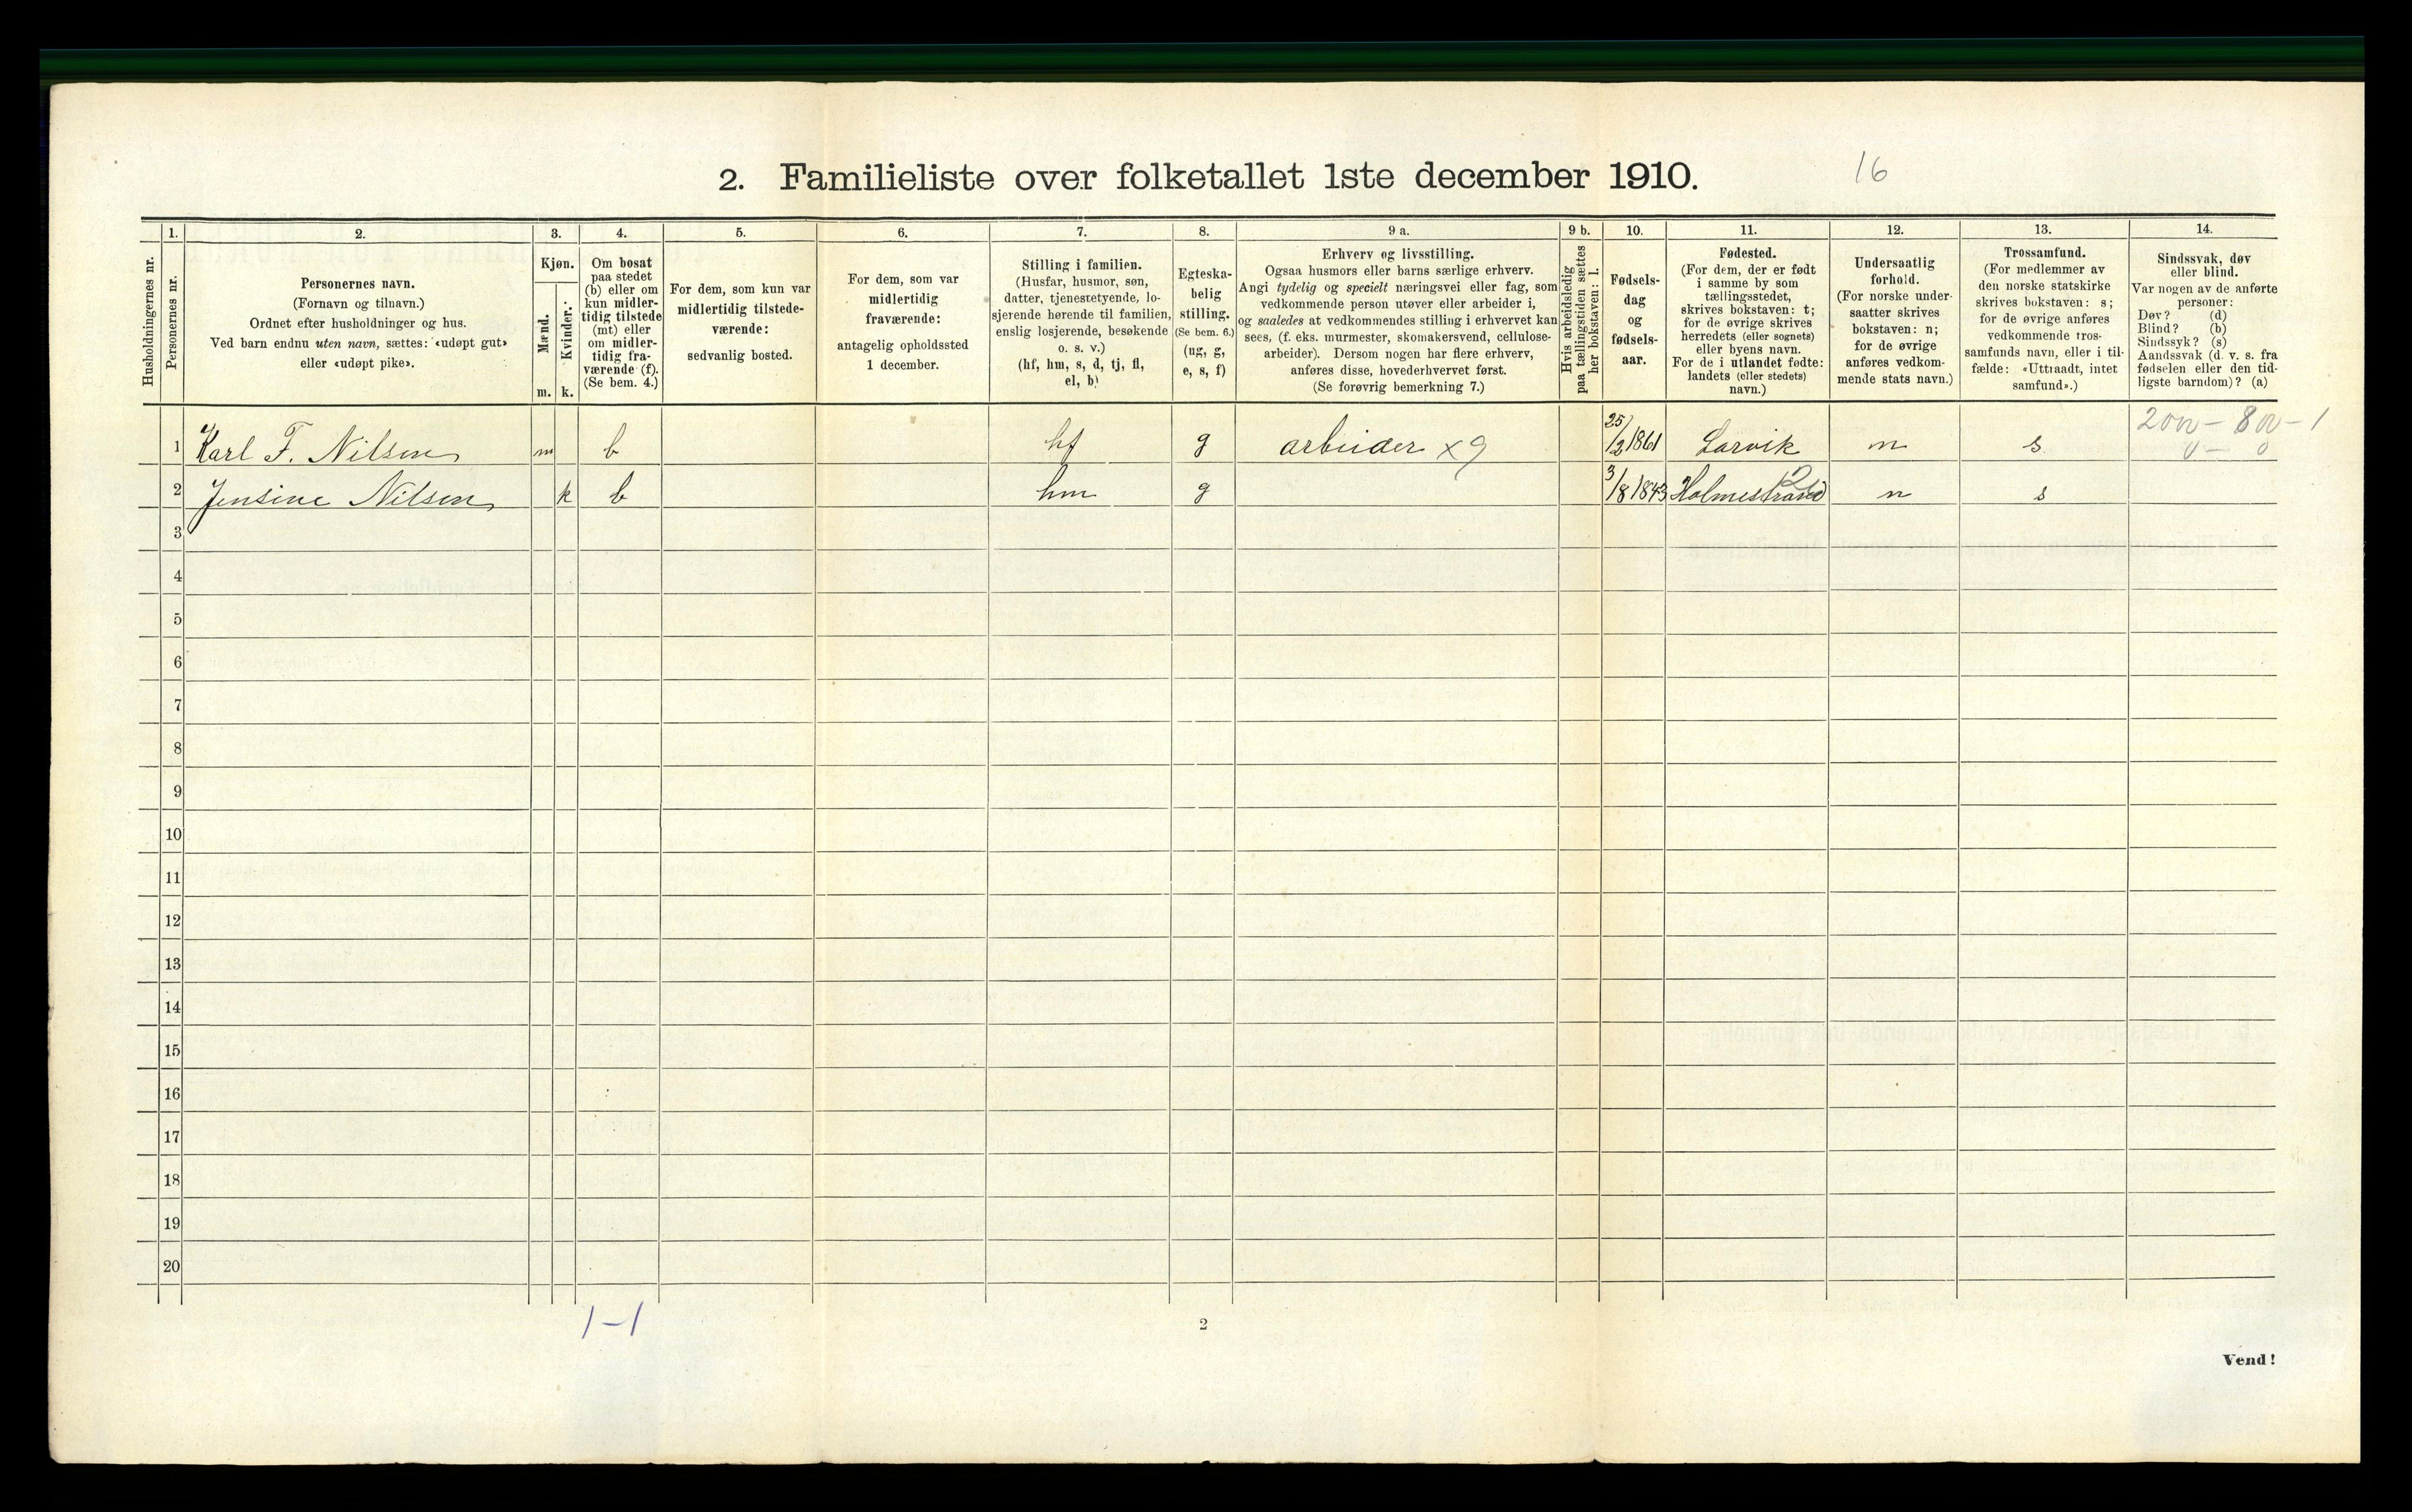 2. Familieliste over folketallet 1ste december 1910.
16
Husholdningernes nr.
1.
Personernes nr.
2.
Personernes navn.
(Fornavn og tilnavn.)
Ordnet efter husholdninger og hus.
Ved barn endnu uten navn, sættes: «udøpt gut»
eller «udøpt pike».
3.
Kjøn.
Mænd.
Kvinder.
m. k.
4.
Om bosat
paa stedet
(b) eller om
kun midler-
tidig tilstede
(mt) eller
om midler-
tidig fra-
værende (f).
(Se bem. 4.)
5.
For dem, som kun var
midlertidig tilstede-
værende:
sedvanlig bosted.
6.
For dem, som var
midlertidig
fraværende:
antagelig opholdssted
1 december.
7.
Stilling i familien.
(Husfar, husmor, søn,
datter, tjenestetyende, lo-
sjerende hørende til familien,
enslig losjerende, besøkende
o. s. v.)
(hf, hm, s, d, tj, fl,
el, b)
8.
Egteska-
belig
stilling.
(Se bem. 6.)
(ug, g,
e, s, f)
9 a.
Erhverv og livsstilling.
Ogsaa husmors eller barns særlige erhverv.
Angi tydelig og specielt næringsvei eller fag, som
vedkommende person utøver eller arbeider i,
og saaledes at vedkommendes stilling i erhvervet kan
sees, (f. eks. murmester, skomakersvend, cellulose-
arbeider). Dersom nogen har flere erhverv,
anføres disse, hovederhvervet først.
(Se forøvrig bemerkning 7.)
9 b.
Hvis arbeidsledig
paa tællingstiden sættes
her bokstaven: l.
10.
Fødsels-
dag
og
fødsels-
aar.
11.
Fødested.
(For dem, der er født
i samme by som
tællingsstedet,
skrives bokstaven: t;
for de øvrige skrives
herredets (eller sognets)
eller byens navn.
For de i utlandet fødte:
landets (eller stedets)
navn.)
12.
Undersaatlig
forhold.
(For norske under-
saatter skrives
bokstaven: n;
for de øvrige
anføres vedkom-
mende stats navn.)
13.
Trossamfund.
(For medlemmer av
den norske statskirke
skrives bokstaven: s;
for de øvrige anføres
vedkommende tros-
samfunds navn, eller i til-
fælde: «Uttraadt, intet
samfund».)
14.
Sindssvak, døv
eller blind.
Var nogen av de anførte
personer:
Døv? (d)
Blind? (b)
Sindssyk? (s)
Aandssvak (d. v. s. fra
fødselen eller den tid-
ligste barndom)? (a)
1 Karl F. Nilsen m b hf g arbeider x9 25/2 1861 Larvik n s
2 Jensine Nilsen k b hm g 3/8 1843 Holmestrand n s
3
4
5
6
7
8
9
10
11
12
13
14
15
16
17
18
19
20
1-1
2
Vend!